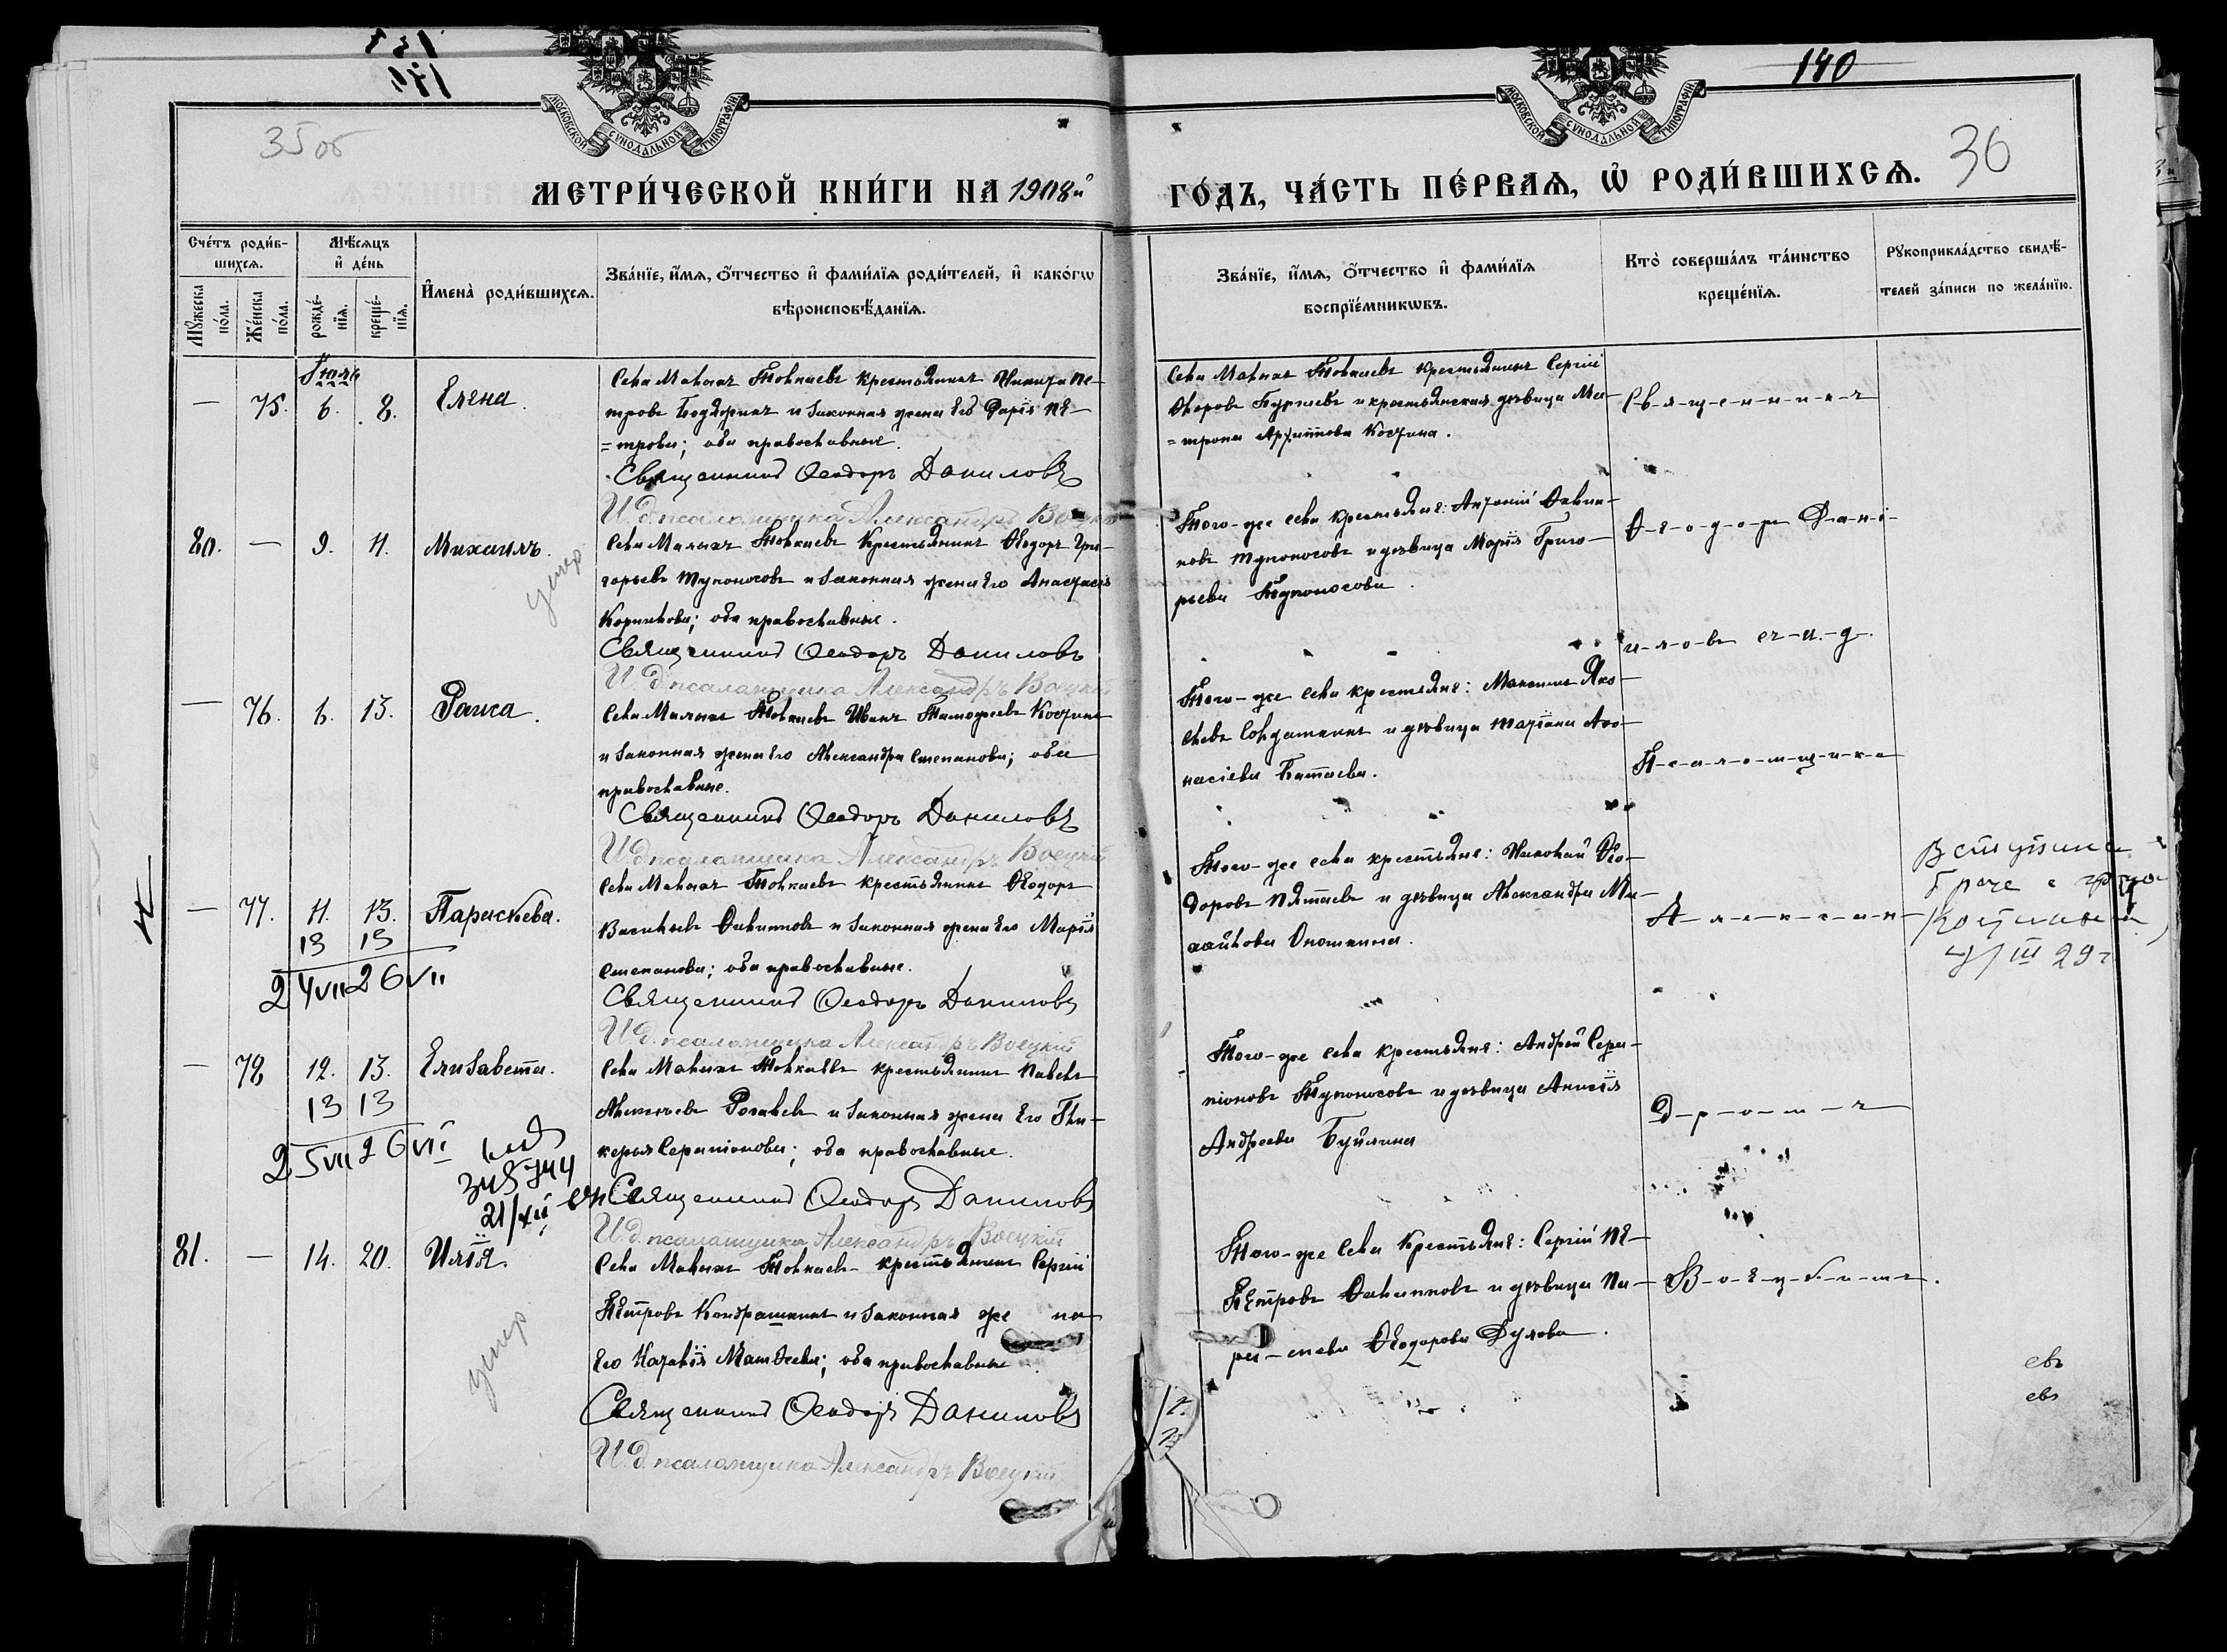 140
35 об
36
МОСКОВСКОЙ СѴНОДАЛЬНОЙ ТИПОГРАФІИ
МОСКОВСКОЙ СѴНОДАЛЬНОЙ ТИПОГРАФІИ
МЕТРИ́ЧЕСКОЙ КНИ́ГИ НА 1908й
ГО́ДЪ, ЧА́СТЬ ПЕ́РВАѦ, Ѽ РОДИ́ВШИХСѦ.
Сче́тъ роди́в-
шихсѧ.
Мѣ́сѧцъ
и҆ де́нь
Мꙋ́жеска по́ла.
Же́нска по́ла.
рожде́-нїѧ.
креще́-нїѧ.
И҆мена̀ роди́вшихсѧ.
Зва́нїе, и҆́мѧ, ѻ҆́тчество и҆ фами́лїѧ роди́телей, и҆ како́гѡ
вѣроисповѣ́данїѧ.
Зва́нїе, и҆́мѧ, ѻ҆́тчество и҆ фами́лїѧ
воспрїе́мникѡвъ.
Кто̀ соверша́лъ та́инство
креще́нїѧ.
Рꙋкоприкла́дство свидѣ́-
телей за́писи по жела́нїю.
Іюль
— 75. 6. 8. Елена.
Села Малыхъ Толкаевъ крестьянинъ Никита Пе-
тровъ Бодяжинъ и законная жена его Дарія Пе-
=трова; оба православные.
Священникъ Ѳеодоръ Даниловъ
И. д. псаломщика Александръ Воецкій
Села Малыхъ Толкаевъ крестьянинъ Сергій
=трона Архиппова Костина.
С-в-я-щ-е-н-н-и-к-ъ
80. — 9. 11. Михаилъ.
умер
Села Малыхъ Толкаевъ крестьянинъ Ѳеодоръ Гри-
горьевъ Тупоносовъ и законная жена его Анастасія
Корнилова; оба православные.
Священникъ Ѳеодоръ Даниловъ
И. д. псаломщика Александръ Воецкій
Того-же села крестьяне: Антоній Филип-
повъ Тупоносовъ и дѣвица Марія Григо-
рьева Тупоносова.
Ѳ-е-о-д-о-ръ Д-а-н-і-
и-л-о-въ съ и.-д.
— 76. 6. 13. Раиса.
Села Малыхъ Толкаевъ Иванъ Тимоѳеевъ Костинъ
и законная жена его Александра Степанова; оба
православные.
Священникъ Ѳеодоръ Даниловъ
И. д. псаломщика Александръ Воецкій
Того-же села крестьяне: Максимъ Яко-
влевъ Солдаткинъ и дѣвица Татіана Аѳа-
насіева Батаева.
П-с-а-л-о-м-щ-и-к-а
— 77. 11. 13. Параскева.
13 13
24 VII 26 VII
Села Малыхъ Толкаевъ крестьянинъ Ѳеодоръ
Васильевъ Филипповъ и законная жена его Марія
Степанова; оба православные.
Священникъ Ѳеодоръ Даниловъ
И. д. псаломщика Александръ Воецкій
Того-же села крестьяне: Николай Ѳео-
доровъ Пятаевъ и дѣвица Александра Ми-
хайлова Оношкина.
А-л-е-к-с-а-н-
Вступила в
браче с гр-ном
/III 29 г
— 78 12. 13. Елизавета.
13 13
25 VII 26 VII
21/XII
Села Малыхъ Толкаевъ крестьянинъ Павелъ
Алексѣевъ Рогалевъ и законная жена его Гли-
керья Серапіонова; оба православные.
Священникъ Ѳеодоръ Даниловъ
И. д. псаломщика Александръ Воецкій
Того-же села крестьяне: Андрей Сера-
піоновъ Тупоносовъ и дѣвица Анисія
Андреева Буйлина
Д-р-о-м-ъ
81. — 14. 20. Илія.
умер
Села Малыхъ Толкаевъ крестьянинъ Сергій
Петровъ Кондрашкинъ и законная же на
его Наталія Матѳеева; оба православные.
Священникъ Ѳеодоръ Даниловъ
И. д. псаломщика Александръ Воецкій
Того-же села крестьяне: Сергій Пе-
Петровъ Филипповъ и дѣвица Па-
рас-кева Ѳеодорова Дулова.
В-о-е-ц-к-и-мъ.
евъ
евъ